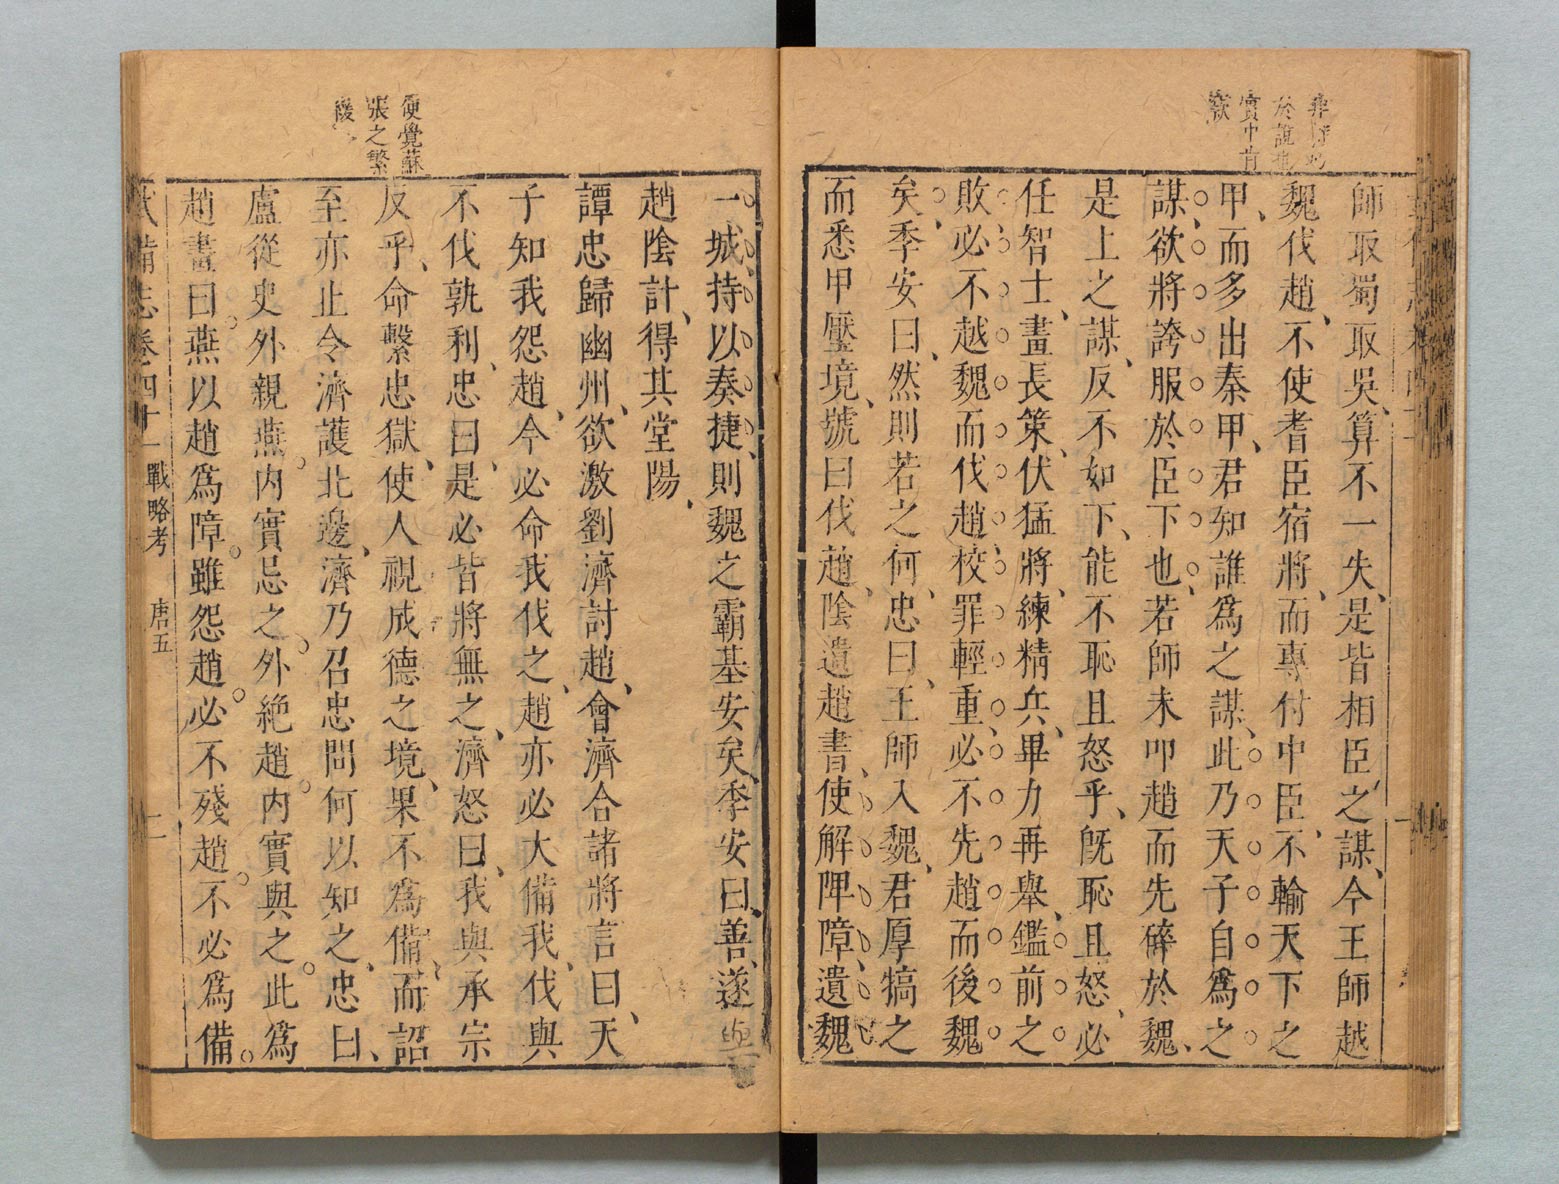 於誰也
實中肯
窾
師取蜀取吳、算不一失、是皆相臣之謀、今王師越
魏伐趙、不使耆臣宿將、而專付中臣、不輸天下之
甲、而多出秦甲、君知誰爲之謀、此乃天子自爲之
謀、欲將誇服於臣下也、若師未叩趙而先碎於魏、
是上之謀、反不如下、能不恥且怒乎、旣恥且怒、必
任智士、畫長策、伏猛將、練精兵、畢力再舉、鑑前之
敗、必不越魏而伐趙、校罪輕重、必不先趙而後魏
矣、季安曰、然則若之何、忠曰、王師入魏、君厚犒之
而悉甲壓境、號曰伐趙、陰遺趙書、使解陴障、遺魏
便覺蘇
張之繁
一城、持以奏捷、則魏之霸基安矣、季安曰、善、遂與
趙陰計、得其堂陽、
譚忠歸幽州、欲激劉濟討趙、會濟合諸將言曰、天
子知我怨趙、今必命我伐之、趙亦必大備我、伐與
不伐孰利、忠曰、是必皆將無之、濟怒曰、我與承宗
反乎、命繫忠獄、使人視成德之境、果不爲備、而詔
至亦止令濟護北邊、濟乃召忠問何以知之、忠曰、
盧從史外親燕。內實忌之。外絶趙。內實與之。此爲
趙畫曰。燕以趙爲障。雖怨趙。必不殘趙。不必爲備。
武備志卷四十一 戰略考 唐五 二